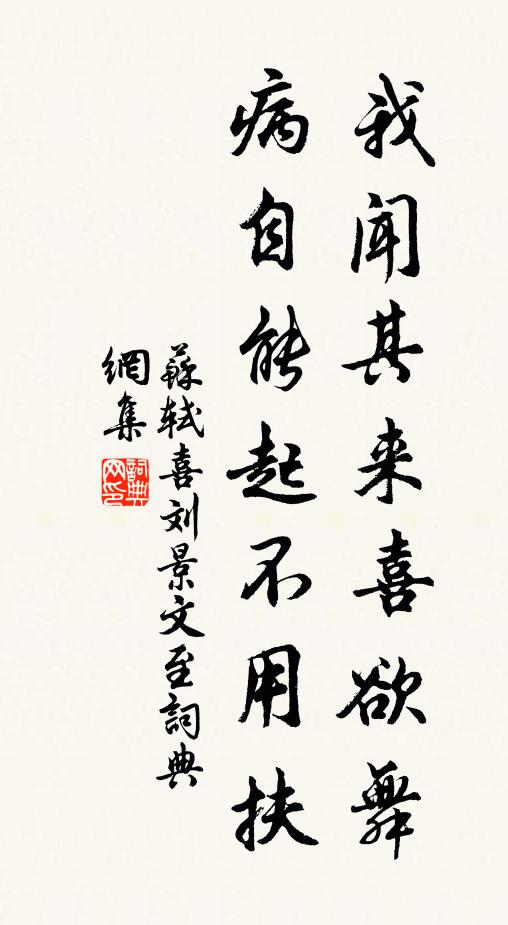 我闻其来喜欲舞
病自能起不用扶
蘇轼喜刘景文至詞典
網集
詞典网印